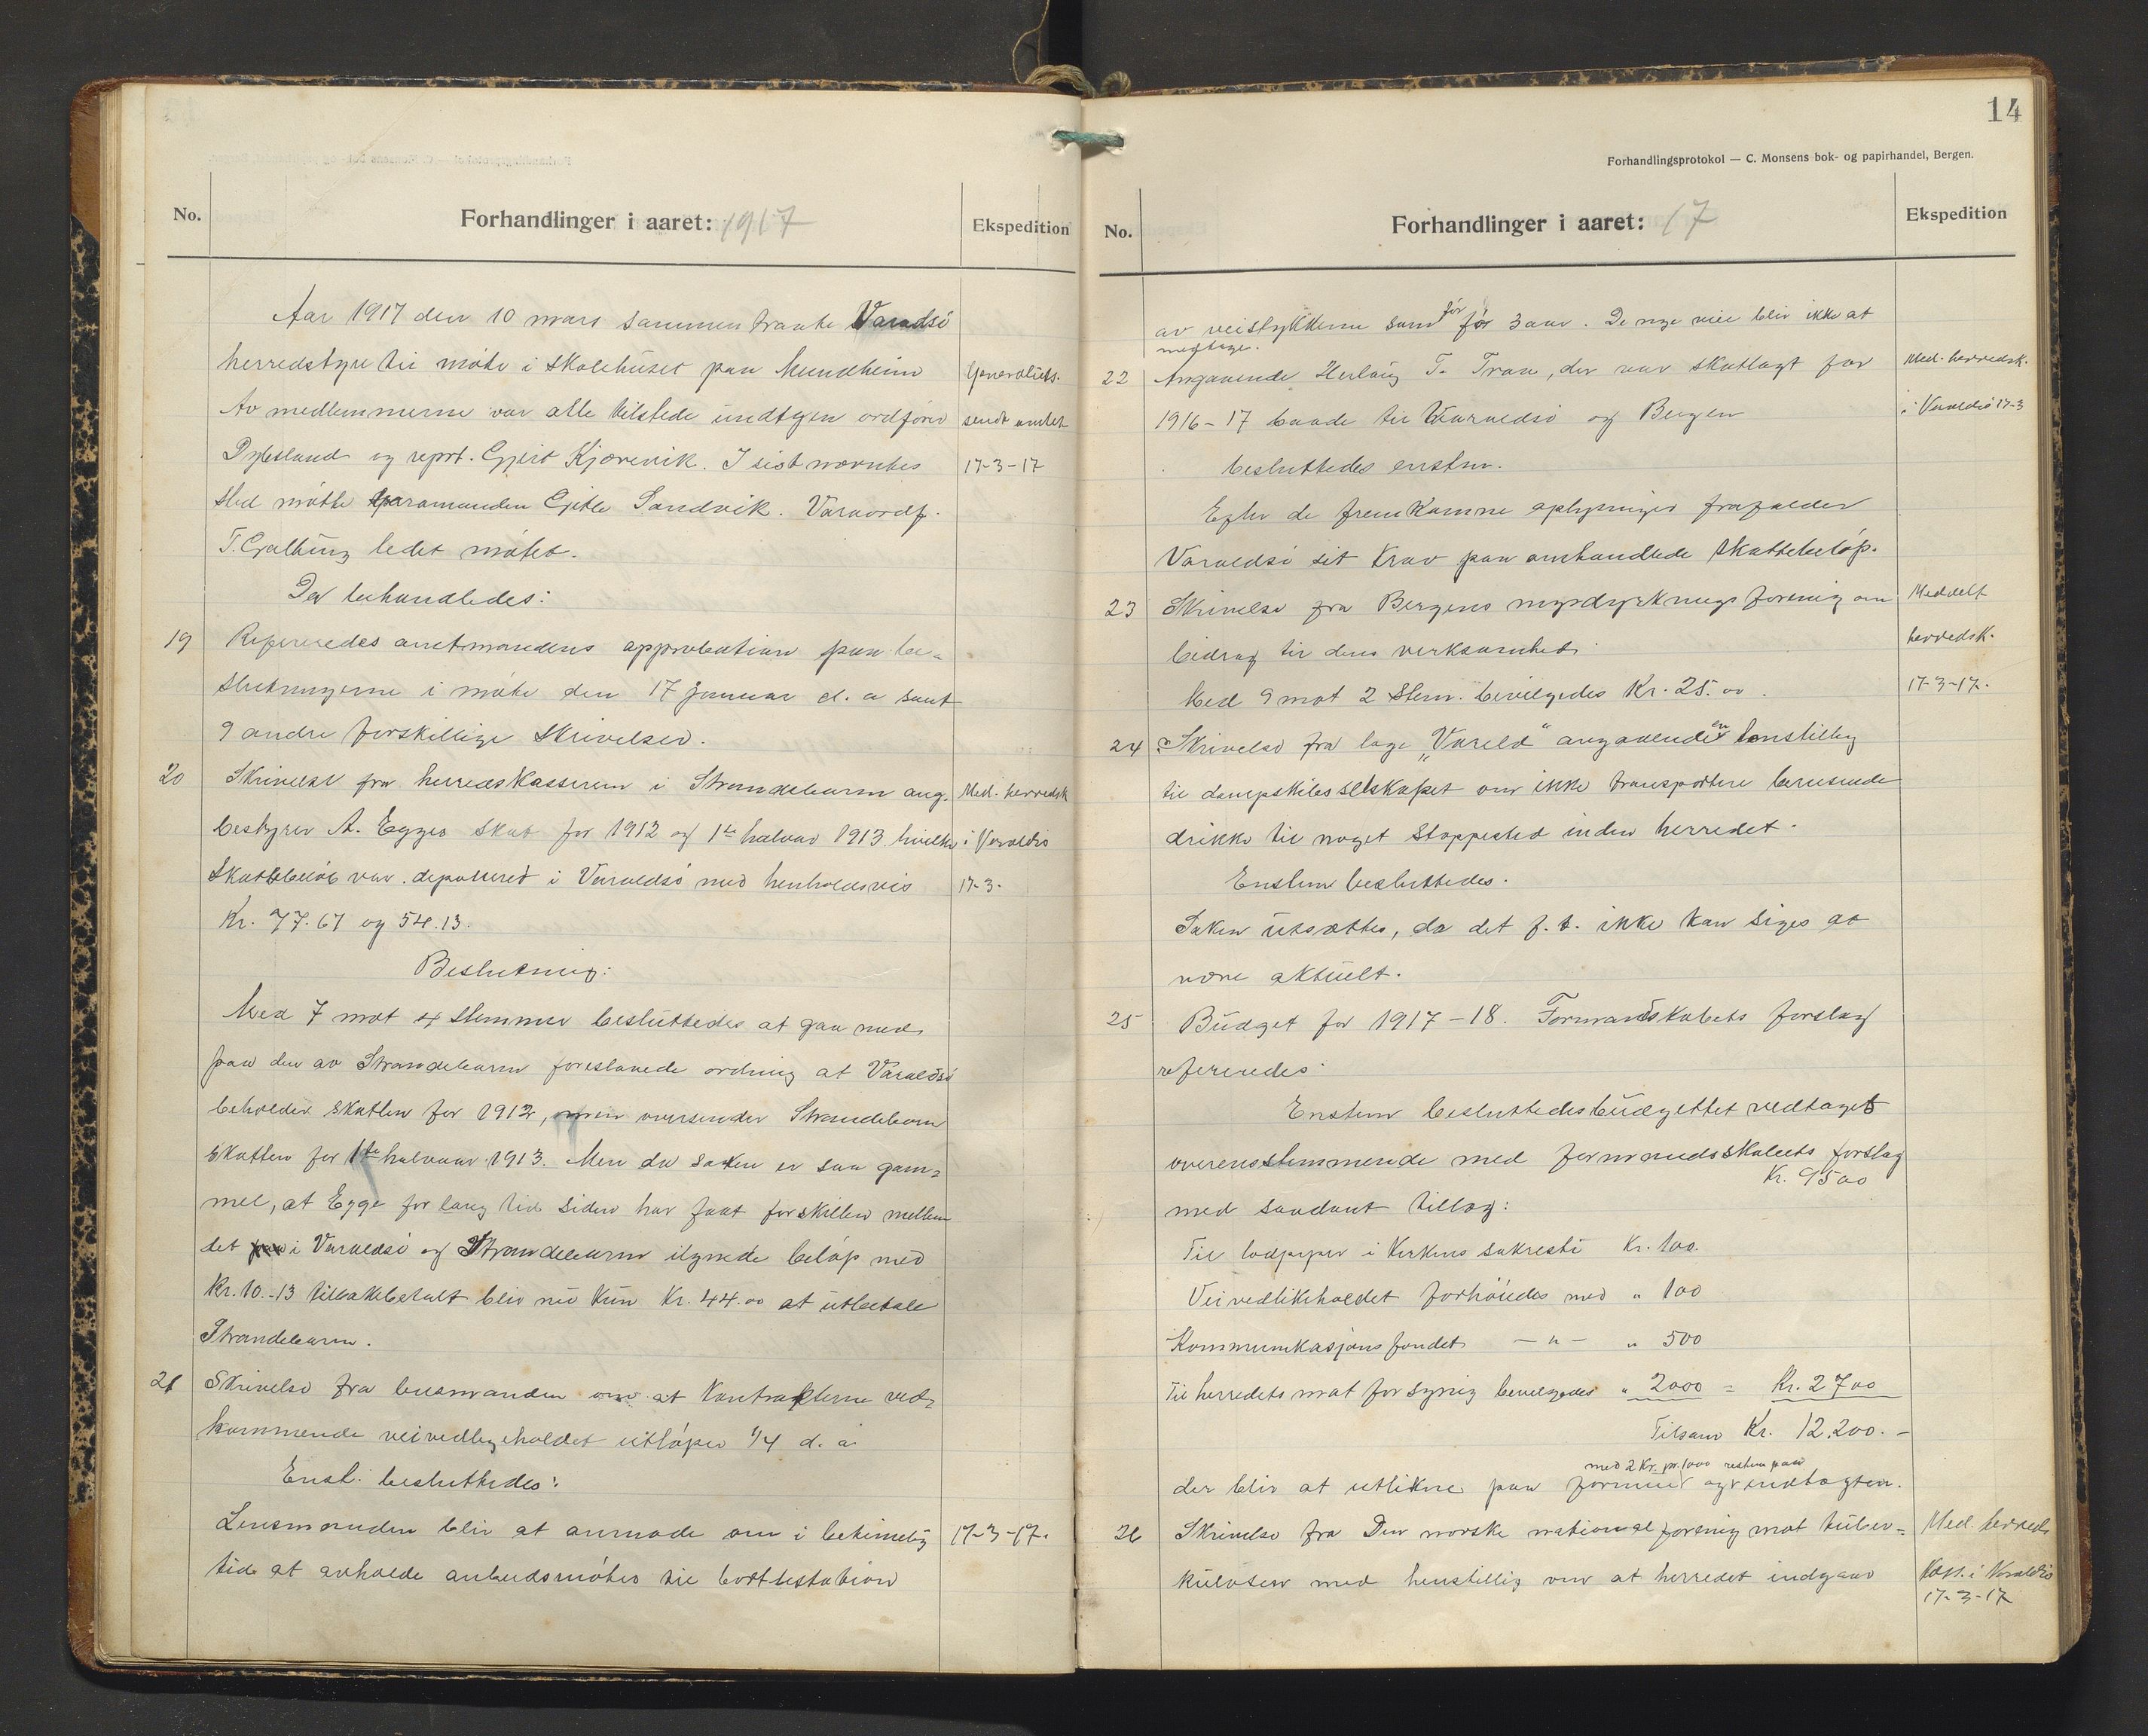 No.
Forhandlinger i aaret: 1917
Ekspedition
Aar 1917 den 10 mars sammentraatte Varaldsö
herredstyre til möte i skolehuset paa Mundheim
Av medlemmerne var alle tilstede undtagen ordförer
Dylesland og reprt. Gjert Kjærevik. I sist nævntes
sted mötte varamanden Gitle Sandvik. Varaordf.
T. Graltung ledet mötet.
Generaliets.
sendt amtet
17-3-17
Der behandledes:
19 Refereredes amtmandens approbation paa be-
slutningerne i möte den 17 januar d. a samt
9 andre forskillige skrivelser.
20 Skrivelse fra herredskasseren i Strandebarm ang.
bestyrer A. Egges skat for 1912 og 1ste halvaar 1913 hvilke
Skattebelöb var deponered i Varaldsö med henholdsvis
Kr. 77.67 og 54.13.
Med. herredsk
i Varaldsö
17-3-
Beslutning:
Med 7 mot 4 stemmer besluttedes at gaa med
paa den av Strandebarm foreslaaede ordning at Varaldsö
beholder skatten for 1912, men oversender Strandebarm
skatten for 1ste halvaar 1913. Men da saken er saa gam-
mel, at Egge for lang tid siden har faat forskillen mellem
det i Varaldsö og Strandebarm ilignede belöp med
Kr. 10.-13 tilbakebetalt blir nu kun Kr. 44.00 at utbetale
Strandebarm.
21 Skrivelse fra lensmanden om at kontrakterne ved-
kommende veivedligeholdet utlöper 1/4 d. a
Enst. besluttedes:
Lensmanden blir at anmode om i betimelig
tid at avholde anbudsmöter til bortlistation
17-3-17.
14
Forhandlingsprotokol — C. Monsens bok- og papirhandel, Bergen.
No.
Forhandlinger i aaret: 17
Ekspedition
av veistykkerne som för for 3 aar. De nye veie blir ikke at
medtage.
22 Angaaende Herlaug T. Traa, der var skatlagt for
1916-17 baade til Varaldsö og Bergen
besluttedes enstem.
Med. herredsk.
i Varaldsö 17-3
Efter de fremkomne oplysninger frafalder
Varaldsö sit krav paa omhandlede skattebelöp.
23 Skrivelse fra Bergens myrdyrkningsforening om
bidrag til dens verksomhet.
Med 9 mot 2 stem. bevilgedes Kr. 25.00.
Meddelt
herredsk.
17-3-17.
24 Skrivelse fra loge "Vareld" angaaende en henstilling
til dampskibsselskapet om ikke transportere berusende
drikke til noget stoppested inden herredet.
Enstem besluttedes.
Saken utsættes, da det f. t. ikke kan siges at
være aktuelt.
25 Budget for 1917-18. Formandskabets forslag
refereredes.
Enstem besluttedes budgettet vedtaget
overensstemmende med formandsskabets forslag
Kr. 9500
med saadant tillæg:
Til lodpiper i kirkens sakresti Kr. 100.
Veivedlikeholdet forhöiedes med " 100
Kommunikasjons fondet — " — " 500
Til herredets matforsyning bevilgedes " 2000 = Kr. 2700
Tilsam Kr. 12.200.-
med 2 Kr. pr. 1000 resten paa
der blir at utlikne paa formue og indtægten.
26 Skrivelse fra Den norske nationalforening mot tuber-
kulosen med henstilling om at herredet indgaar
Med herreds
kass. i Varaldsö
17-3-17